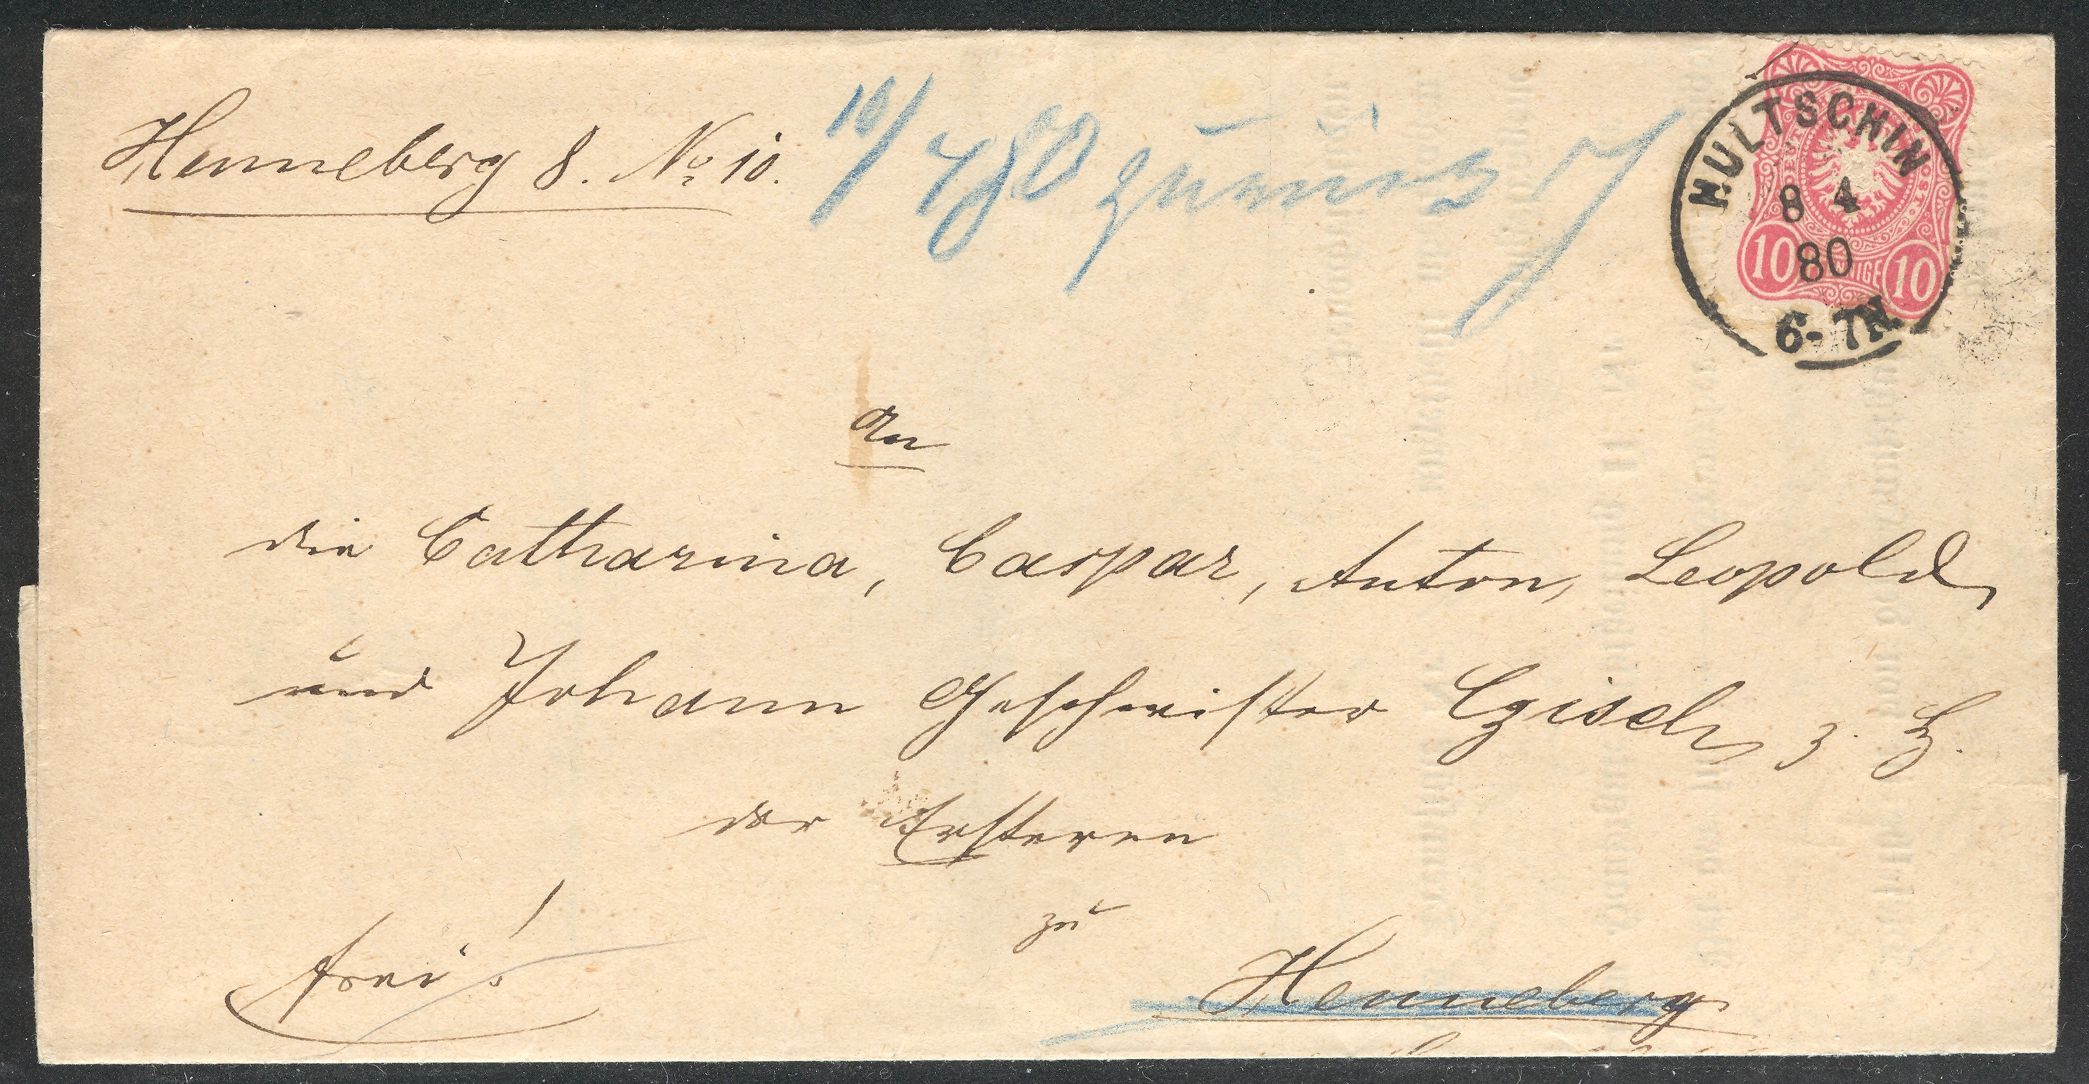 Henneberg 8. No 10.
10/4 80 zurück
HULTSCHIN
8 4
80
6-7N.
10 10
An
die Catharina, Caspar, Anton, Leopold,
und Johann Geschwister Czisch, z. H.
der Ersteren
zu
frei!
Henneberg